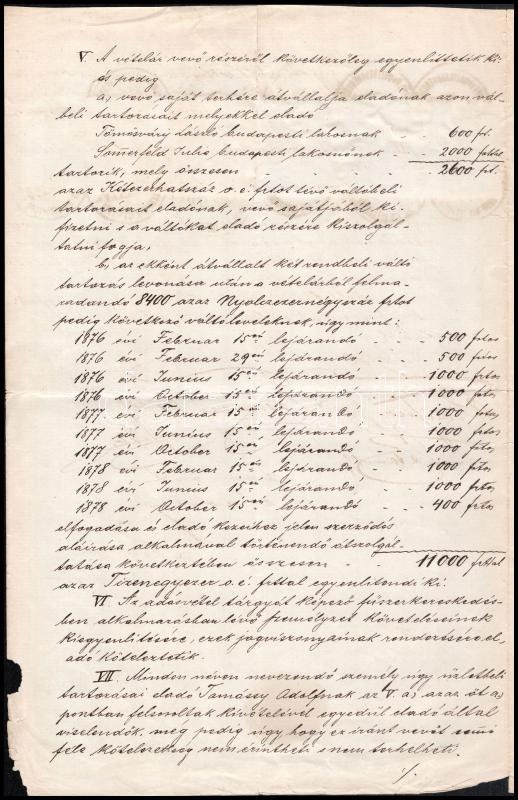 V. A vételár vevő részéről következőleg egyenlíttetik ki
és pedig
a, vevő saját terhére átvállalja eladónak azon vál-
beli tartozásait melyekkel eladó
Tömösváry László budapesti lakosnak - - 600 frt.
Somerfeld Julie budapesti lakosnőnek - - 2000 frttal
tartozik, mely összesen - - - - 2600 frt.
azaz Kétezerhatszáz o. é. frtot tévő váltóbeli
tartozásait eladónak, vevő sajátjából ki-
fizetni s a váltókat eladó részére kiszolgál-
tatni fogja,
b, az ekként átvállalt két rendbeli váltó
tartozás levonása után a vételárból felma-
radandó 8400 azaz Nyolczezernégyszáz frtot
pedig következő váltóleveleknek, úgymint:
1876 évi Februar 15én lejárandó - - 500 frtos
1876 évi Februar 29én lejárandó - - 500 frtos
1876 évi Junius 15én lejárandó - - 1000 frtos
1876 évi October 15én lejárandó - - 1000 frtos
1877 évi Februar 15én lejárandó - - 1000 frtos
1877 évi Junius 15én lejárandó - - 1000 frtos
1877 évi October 15én lejárandó - - 1000 frtos
1878 évi Februar 15én lejárandó - - 1000 frtos
1878 évi Junius 15én lejárandó - - 1000 frtos
1878 évi October 15én lejárandó - - 400 frtos
elfogadása és eladó kezeihez jelen szerződés
aláírása alkalmával történendő átszolgál-
tatása következtében összesen - 11000 frttal
azaz Tizenegyezer o. é. frttal egyenlítendi ki.
VI. Az adásvétel tárgyát képező fűszerkereskedés-
ben alkalmazásban lévő személyzet követeléseinek
kiegyenlítésére, ezek jogviszonyainak rendezésére el-
adó köteleztetik.
VII. Minden néven nevezendő személy úgy üzletbeli
tartozásai eladó Tamássy Adolfnak az V. a, azaz öt a,
pontban felsoroltak kivételével egyedül eladó által
viselendők, meg pedig úgy, hogy ez iránt vevőt semmi
féle kötelezettség nem érintheti s nem terhelheti.
·/.